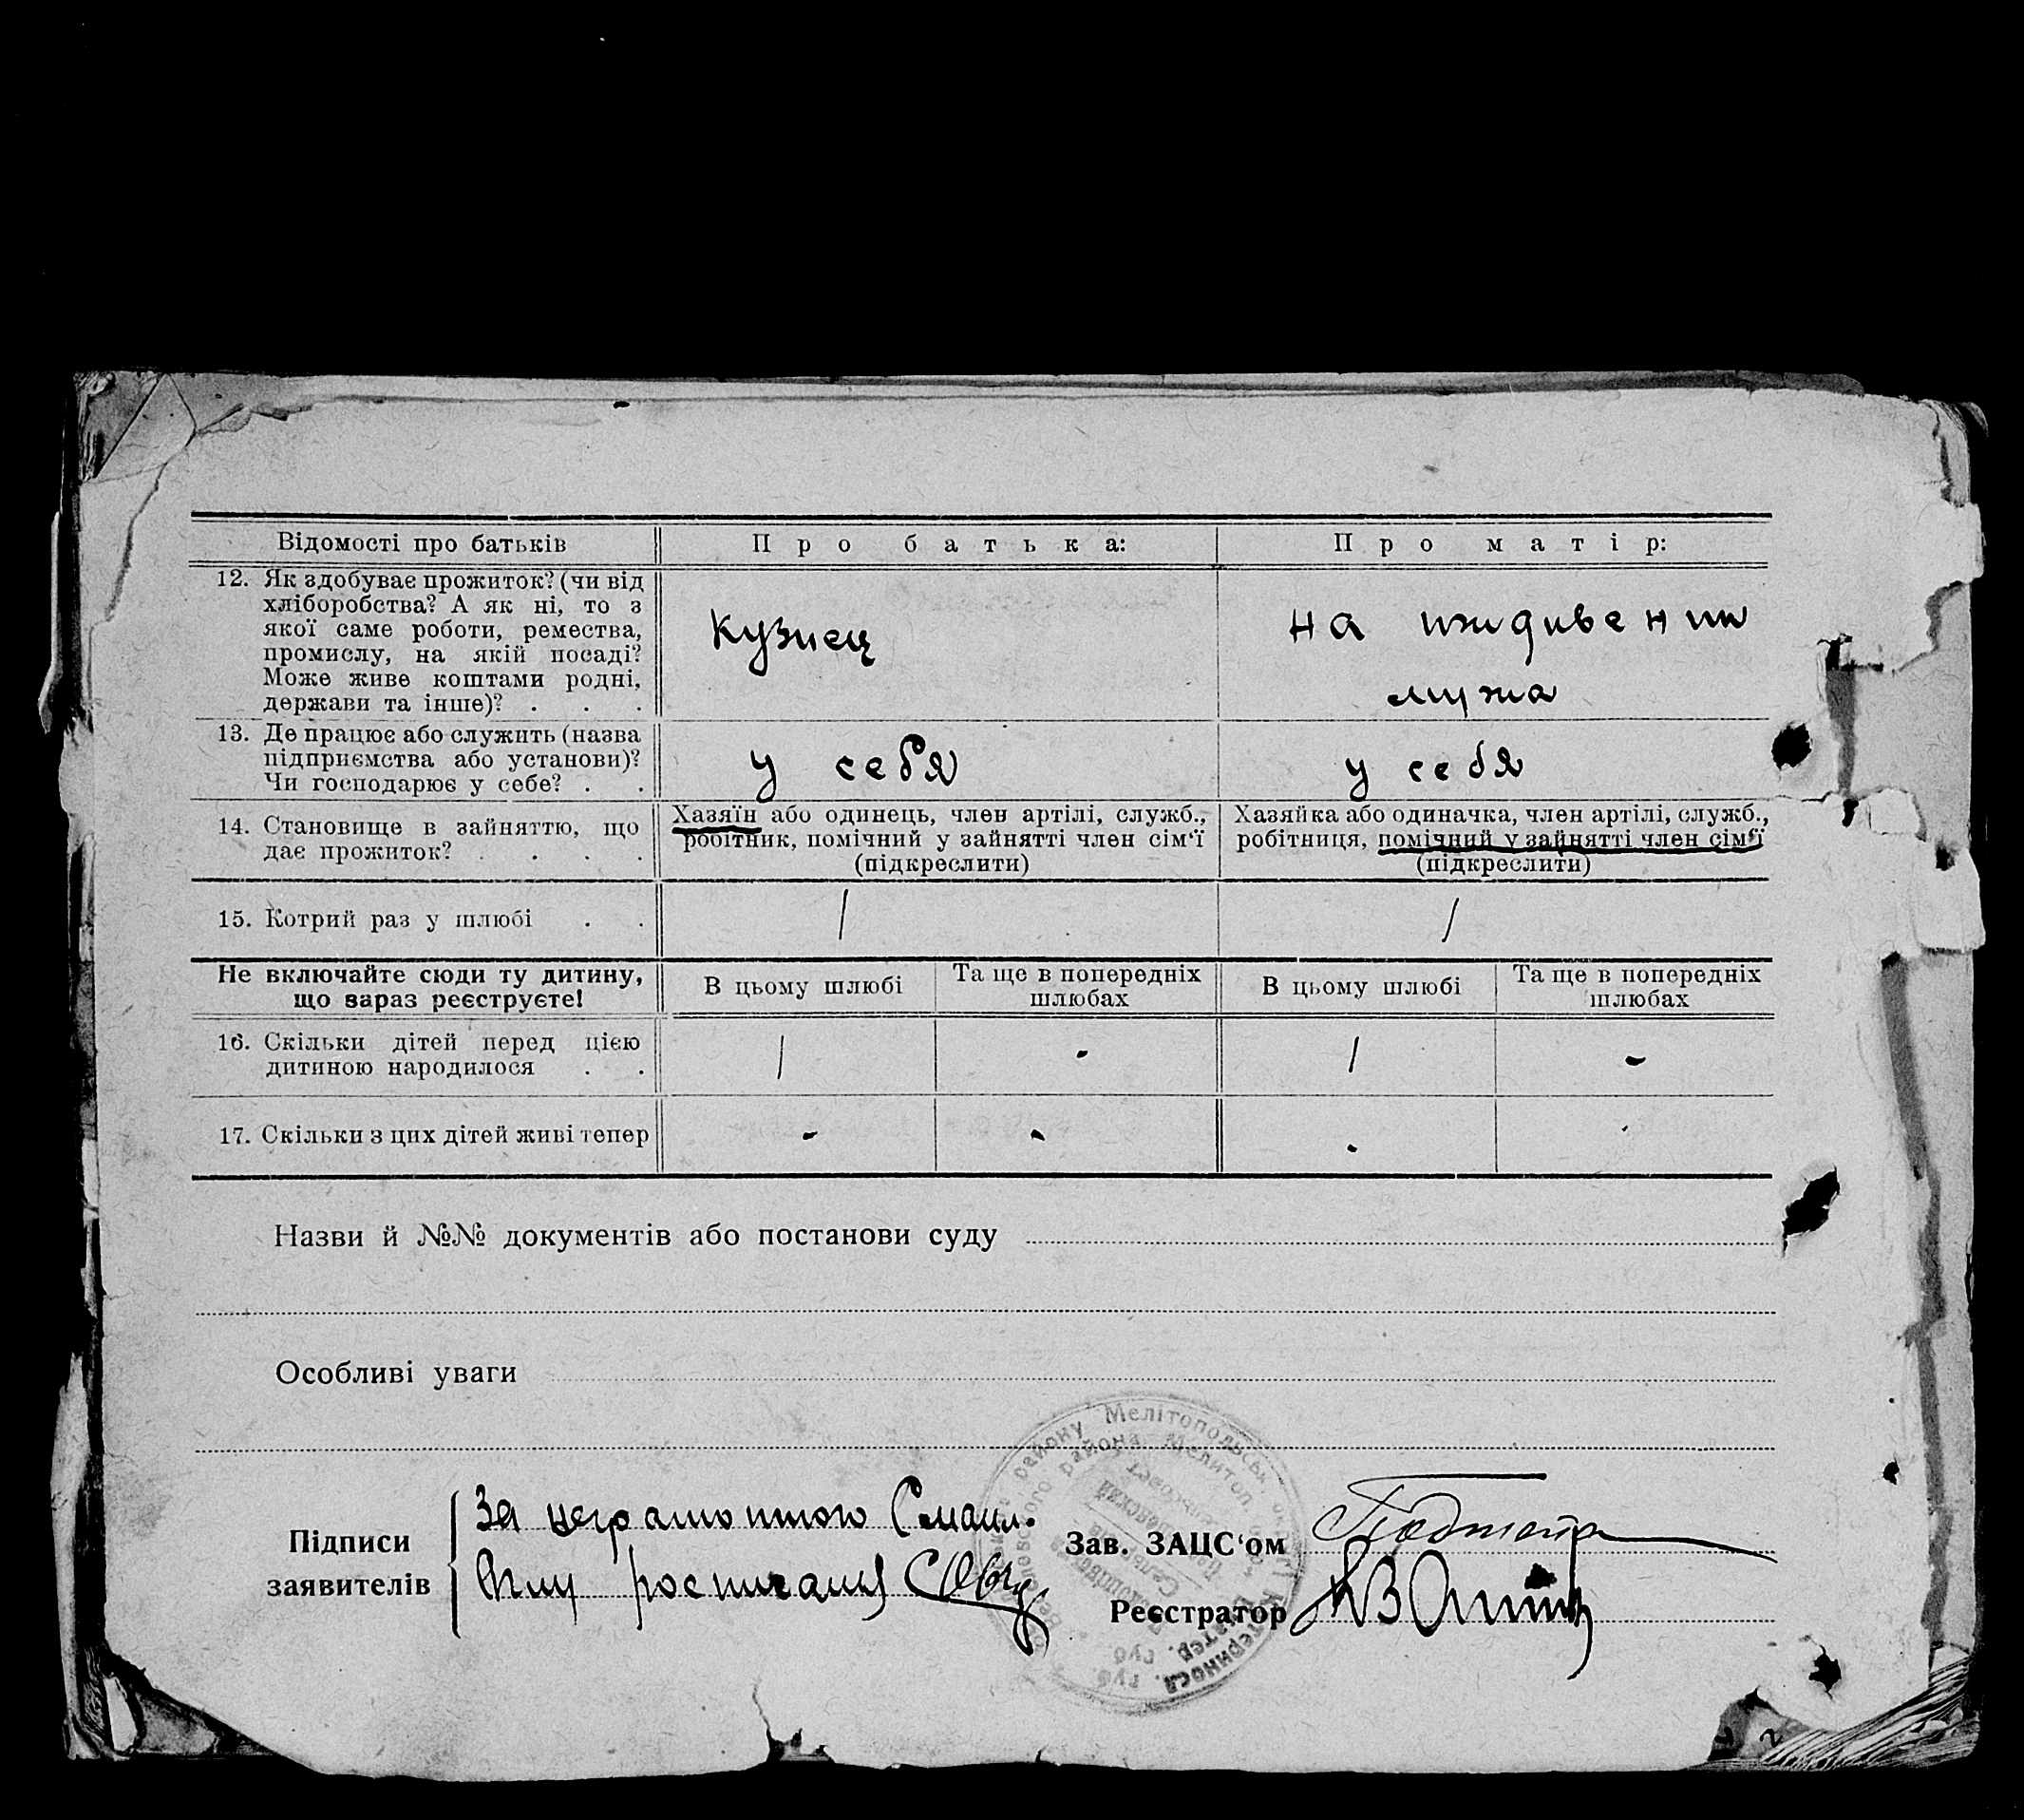 Відомості про батьків
Про батька:
Про матір:
12. Як здобуває прожиток? (чи від
хліборобства? А як ні, то з
якої саме роботи, ремества,
промислу, на якій посаді?
Може живе коштами родні,
держави та інше)? . . .
Кузнец
на иждивении
мужа
13. Де працює або служить (назва
підприємства або установи)?
Чи господарює у себе? . .
у себя
у себя
14. Становище в зайняттю, що
дає прожиток? . . . .
Хазяїн або одинець, член артілі, служб.,
робітник, помічний у зайнятті член сім‘ї
(підкреслити)
Хазяйка або одиначка, член артілі, служб.,
робітниця, помічний у зайнятті член сім‘ї
(підкреслити)
15. Котрий раз у шлюбі . .
1
1
Не включайте сюди ту дитину,
що зараз реєструєте!
В цьому шлюбі
Та ще в попередніх
шлюбах
В цьому шлюбі
Та ще в попередніх
шлюбах
16. Скільки дітей перед цією
дитиною народилося . .
1
-
1
-
17. Скільки з цих дітей живі тепер
-
-
-
-
Назви й №№ документів або постанови суду
Особливі уваги
району Мелітопольськ.
района Мелитоп.
Підписи
заявителів
За неграмотного
росписался
Зав. ЗАЦС‘ом
Реєстратор